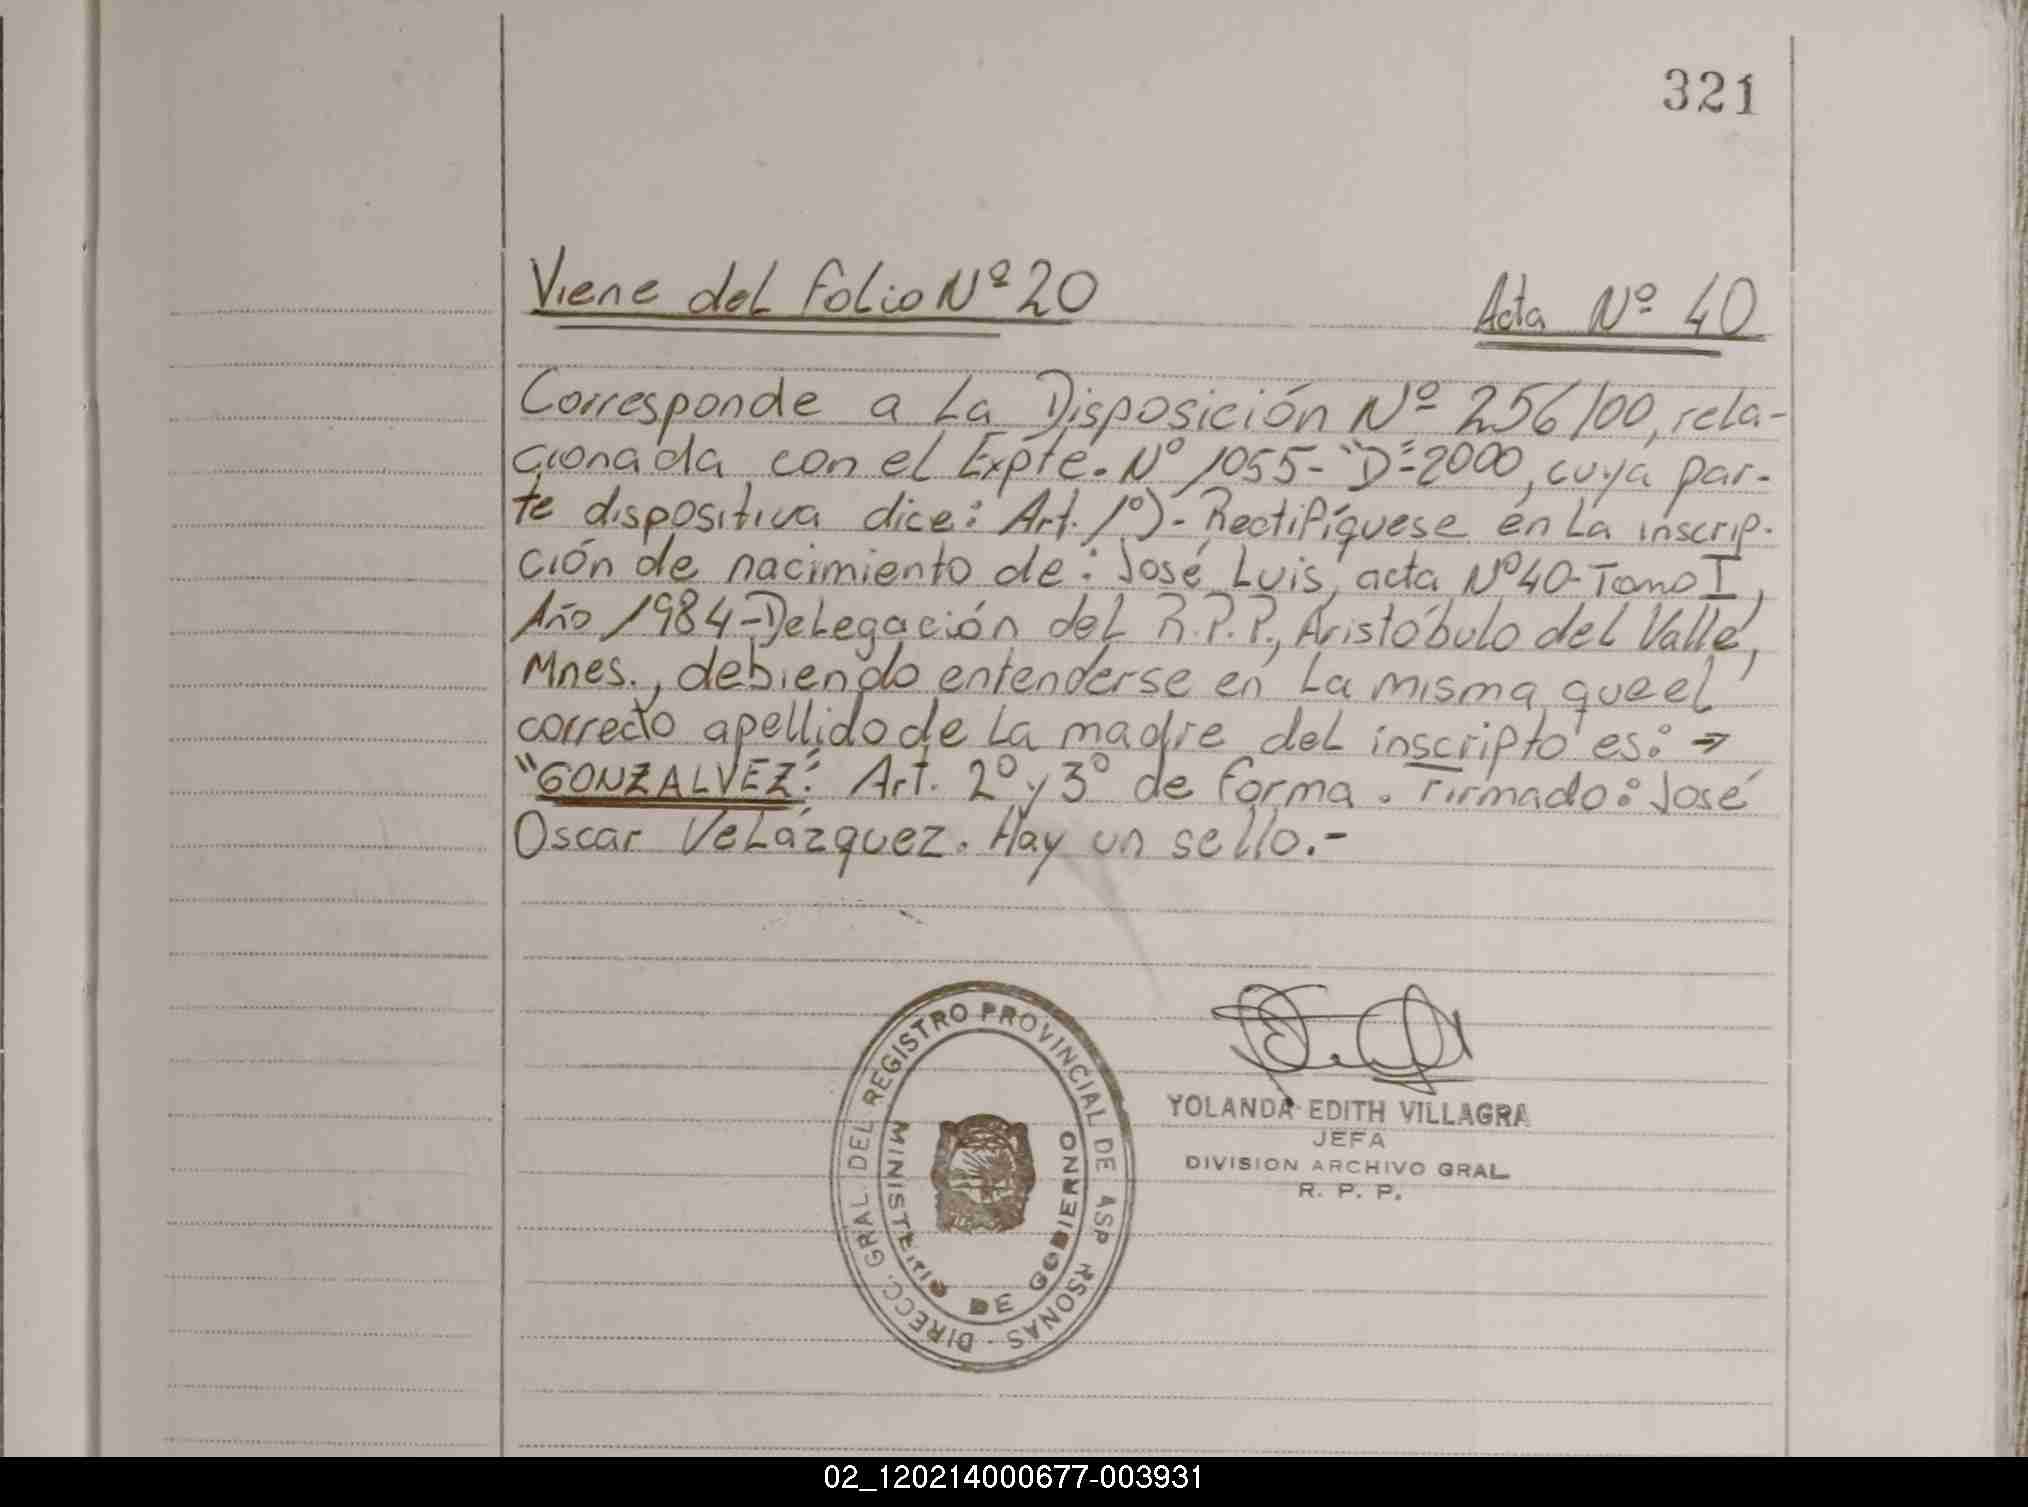 321
Viene del folio Nº 20
Acta Nº 40
Corresponde a la Disposición Nº 256/00, rela-
cionada con el Expte. Nº 1055-"D"-2000, cuya par-
te dispositiva dice: Art. 1º)- Rectifíquese en la inscrip-
ción de nacimiento de: José Luis, acta Nº 40-Tomo I,
Año 1984-Delegación del R.P.P., Aristóbulo del Valle,
Mnes., debiendo entenderse en la misma que el
correcto apellido de la madre del inscripto es: →
"GONZALVEZ". Art. 2º y 3º de forma. Firmado: José
Oscar Velázquez. Hay un sello.-
DIRECC. GRAL. DEL REGISTRO PROVINCIAL DE ASP RSONAS -
MINISTERIO DE GOBIERNO
YOLANDA EDITH VILLAGRA
JEFA
DIVISION ARCHIVO GRAL.
R. P. P.
02_120214000677-003931